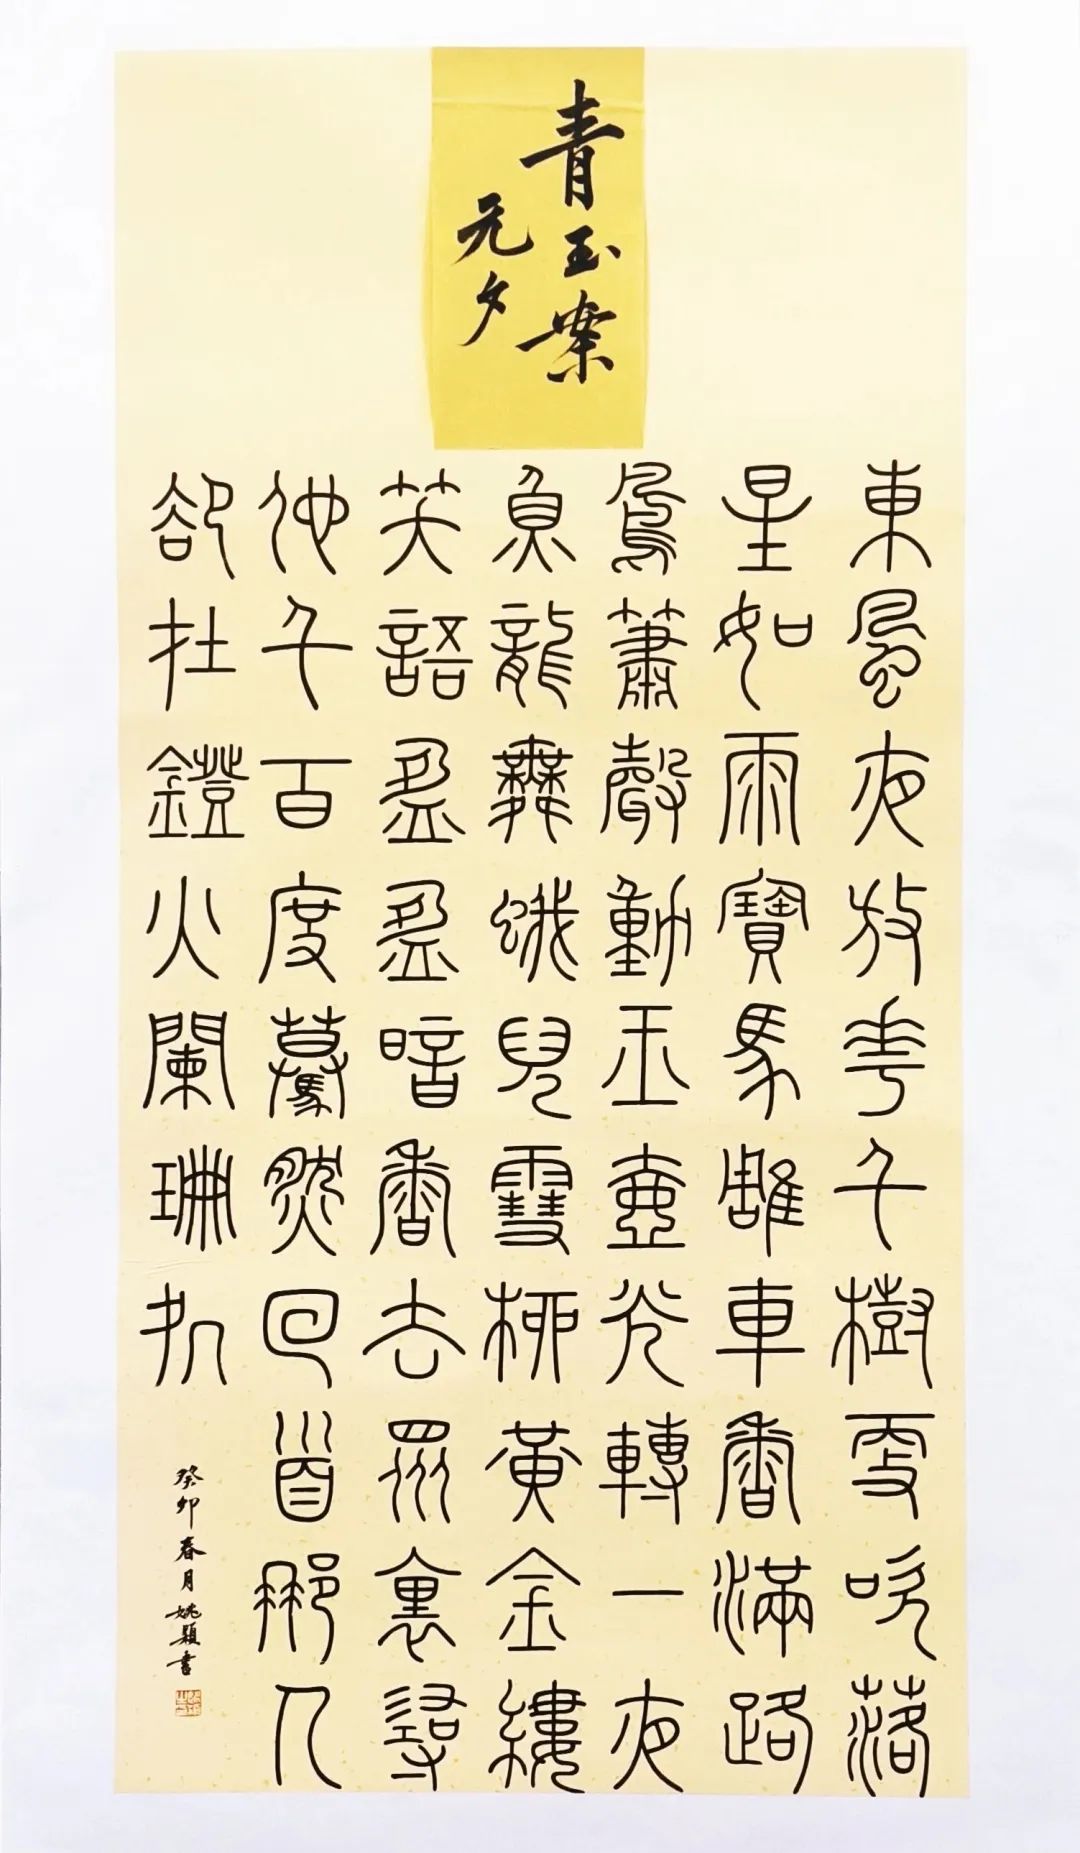 青玉案
元夕
東風夜放花千樹更吹落
星如雨寶馬雕車香滿路
鳳簫聲動玉壺光轉一夜
魚龍舞蛾兒雪柳黃金縷
笑語盈盈暗香去眾裏尋
他千百度驀然回首那人
卻在鐙火闌珊処
癸卯春月姚穎書